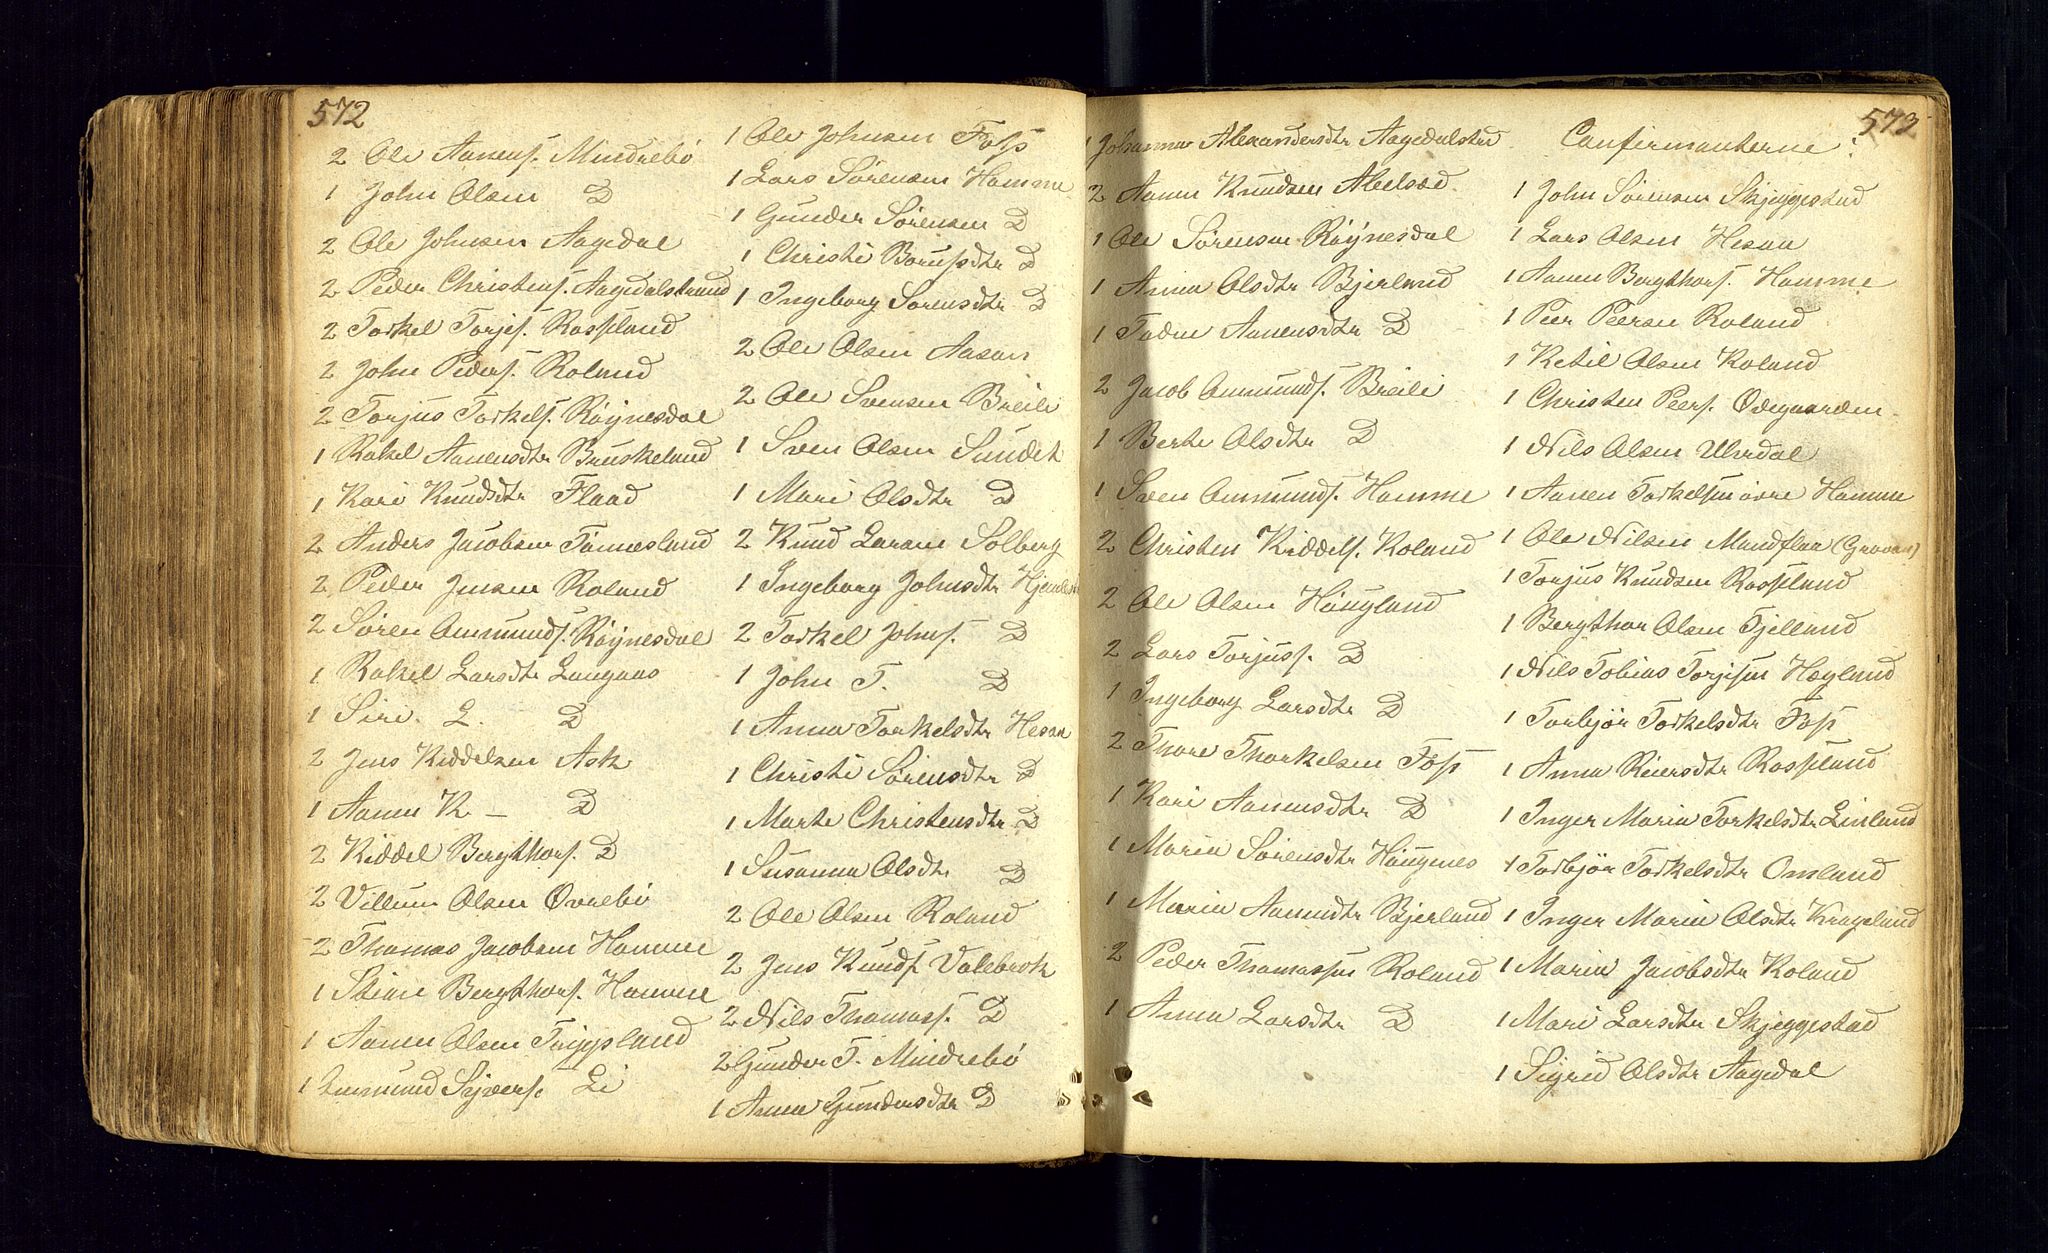 572
2 Ole Aanens. Mindrebö
1 John Olsen D
2 Ole Johnsen Aagedal
2 Peder Christens. Aagedalstrand
2 Torkel Torjes. Rossland
2 John Peders. Roland
2 Torjus Torkels. Röÿnesdal
1 Rakel Aanensdtr Bruskeland
1 Kari Knudsdtr Flaad
2 Anders Jacobsen Tönnesland
2 Peder Jensen Roland
2 Sören Ommunds. Röÿnesdal
1 Rakel Larsdtr Langnæs
1 Siri. L. D
2 Jens Kiddelsen Ask
1 Aanen K - D
2 Kiddel Bergthors. D
2 Villum Olsen Øvrebö
2 Thomas Jacobsen Homme
1 Stine Bergthors. Homme
1 Aanen Olsen Trÿgsland
1 Ommund Sÿvers. Li
1 Ole Johnsen Foss
1 Lars Sörensen Homme
1 Gunder Sörensen D
1 Christi Boruesdtr D
1 Ingeborg Sörensdtr D
2 Ole Olsen Aasen
2 Ole Svensen Breili
1 Sven Olsen Sundet
1 Mari Olsdtr D
2 Knud Larsen Solberg
1 Ingeborg Johnsdtr
2 Torkel Johns. D
1 John T. D
1 Anna Torkelsdtr Hesaa
1 Christi Sörensdtr D
1 Marte Christensdtr D
1 Susanna Olsdtr D
2 Ole Olsen Roland
2 Jens Knuds. Valebrok
2 Nils Thomass. D
2 Gunder T. Mindrebö
1 Anna Gundersdtr D
573
1 Johanna Alexandersdtr Aagedalstrd
2 Aanen Knudsen Abelsæd
1 Ole Sörensen Röÿnesdal
1 Anna Olsdtr Bjerland
1 Tadne Aanensdtr D
2 Jacob Ommunds. Breili
1 Berte Olsdtr D
1 Sven Ommunds. Homme
2 Christen Kiddels. Roland
2 Ole Olsen Höugland
2 Lars Torjuss. D
1 Ingeborg Larsdtr D
2 Thore Thorkelsen Foss
1 Kari Aanensdtr D
1 Maria Sörensdtr Höugnes
1 Maria Aanensdtr Bjerland
2 Peder Thomassen Roland
1 Anna Larsdtr D
Confirmanterne:
1 John Sörensen Skjeggestad
1 Lars Olsen Hesaa
1 Aanen Bergthors. Homme
1 Peer Peersen Roland
1 Ketil Olsen Roland
1 Christen Peers. Ødegaarden
1 Nils Olsen Uhrdal
1 Aanen Torkelsen övre Homme
1 Ole Nilsen Mandflaa (Grovan)
1 Torjus Knudsen Rossland
1 Bergthor Olsen Fjelland
1 Nils Tobias Torjesen Hægland
1 Torbjör Torkelsdtr Foss
1 Anna Reiersdtr Rossland
1 Inger Maria Torkelsdtr Linland
1 Torbjör Torkelsdtr Omland
1 Inger Maria Olsdtr Krageland
1 Maria Jacobsdtr Roland
1 Mari Larsdtr Skjeggestad
1 Sigrid Olsdtr Aagedal